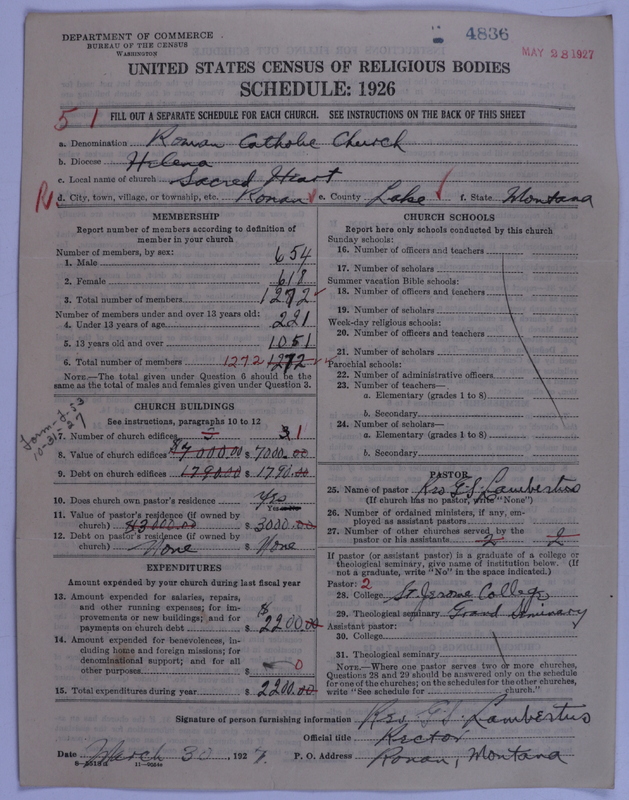 DEPARTMENT OF COMMERCE
BUREAU OF THE CENSUS
WASHINGTON
4836
MAY 28 1927
UNITED STATES CENSUS OF RELIGIOUS BODIES
SCHEDULE: 1926
51
FILL OUT A SEPARATE SCHEDULE FOR EACH CHURCH. SEE INSTRUCTIONS ON THE BACK OF THIS SHEET
a. Denomination Roman Catholic Church
b. Diocese Helena
c. Local name of church Sacred Heart
R d. City, town, village, or township, etc. Ronan e. County Lake f. State Montana
MEMBERSHIP
Report number of members according to definition of
member in your church
Number of members, by sex:
1. Male 654
2. Female 618
3. Total number of members 1272
Number of members under and over 13 years old:
4. Under 13 years of age 221
5. 13 years old and over 1051
6. Total number of members 1272 1272
NOTE.—The total given under Question 6 should be the
same as the total of males and females given under Question 3.
CHURCH BUILDINGS
See instructions, paragraphs 10 to 12
Form-J-53
10-31-27
7. Number of church edifices 3 3 1
8. Value of church edifices $7000.00 $ 7000.00
9. Debt on church edifices 1790.00 $ 1790.00
10. Does church own pastor's residence Yes
Yes
11. Value of pastor's residence (if owned by
church) $3000.00 $ 3000.00
12. Debt on pastor's residence (if owned by
church) None $ None
EXPENDITURES
Amount expended by your church during last fiscal year
13. Amount expended for salaries, repairs,
and other running expenses; for im-
provements or new buildings; and for
payments on church debt $ 2200.00
14. Amount expended for benevolences, in-
cluding home and foreign missions; for
denominational support; and for all
other purposes $ 0
15. Total expenditures during year $ 2200.00
CHURCH SCHOOLS
Report here only schools conducted by this church
Sunday schools:
16. Number of officers and teachers
17. Number of scholars
Summer vacation Bible schools:
18. Number of officers and teachers
19. Number of scholars
Week-day religious schools:
20. Number of officers and teachers
21. Number of scholars
Parochial schools:
22. Number of administrative officers
23. Number of teachers—
a. Elementary (grades 1 to 8)
b. Secondary
24. Number of scholars—
a. Elementary (grades 1 to 8)
b. Secondary
PASTOR
25. Name of pastor Rev G S Lambertus
(If church has no pastor, write "None")
26. Number of ordained ministers, if any, em-
ployed as assistant pastors
27. Number of other churches served by the
pastor or his assistants 2 2
If pastor (or assistant pastor) is a graduate of a college or
theological seminary, give name of institution below. (If
not a graduate, write "No" in the space indicated.)
Pastor: 2
28. College St Jerome College
29. Theological seminary Grand Seminary
Assistant pastor:
30. College
31. Theological seminary
NOTE.—Where one pastor serves two or more churches,
Questions 28 and 29 should be answered only on the schedule
for one of the churches; on the schedules for the other churches,
write "See schedule for church."
Signature of person furnishing information Rev. G S. Lambertus
Official title Rector
Date March 30, 1927. P. O. Address Ronan, Montana